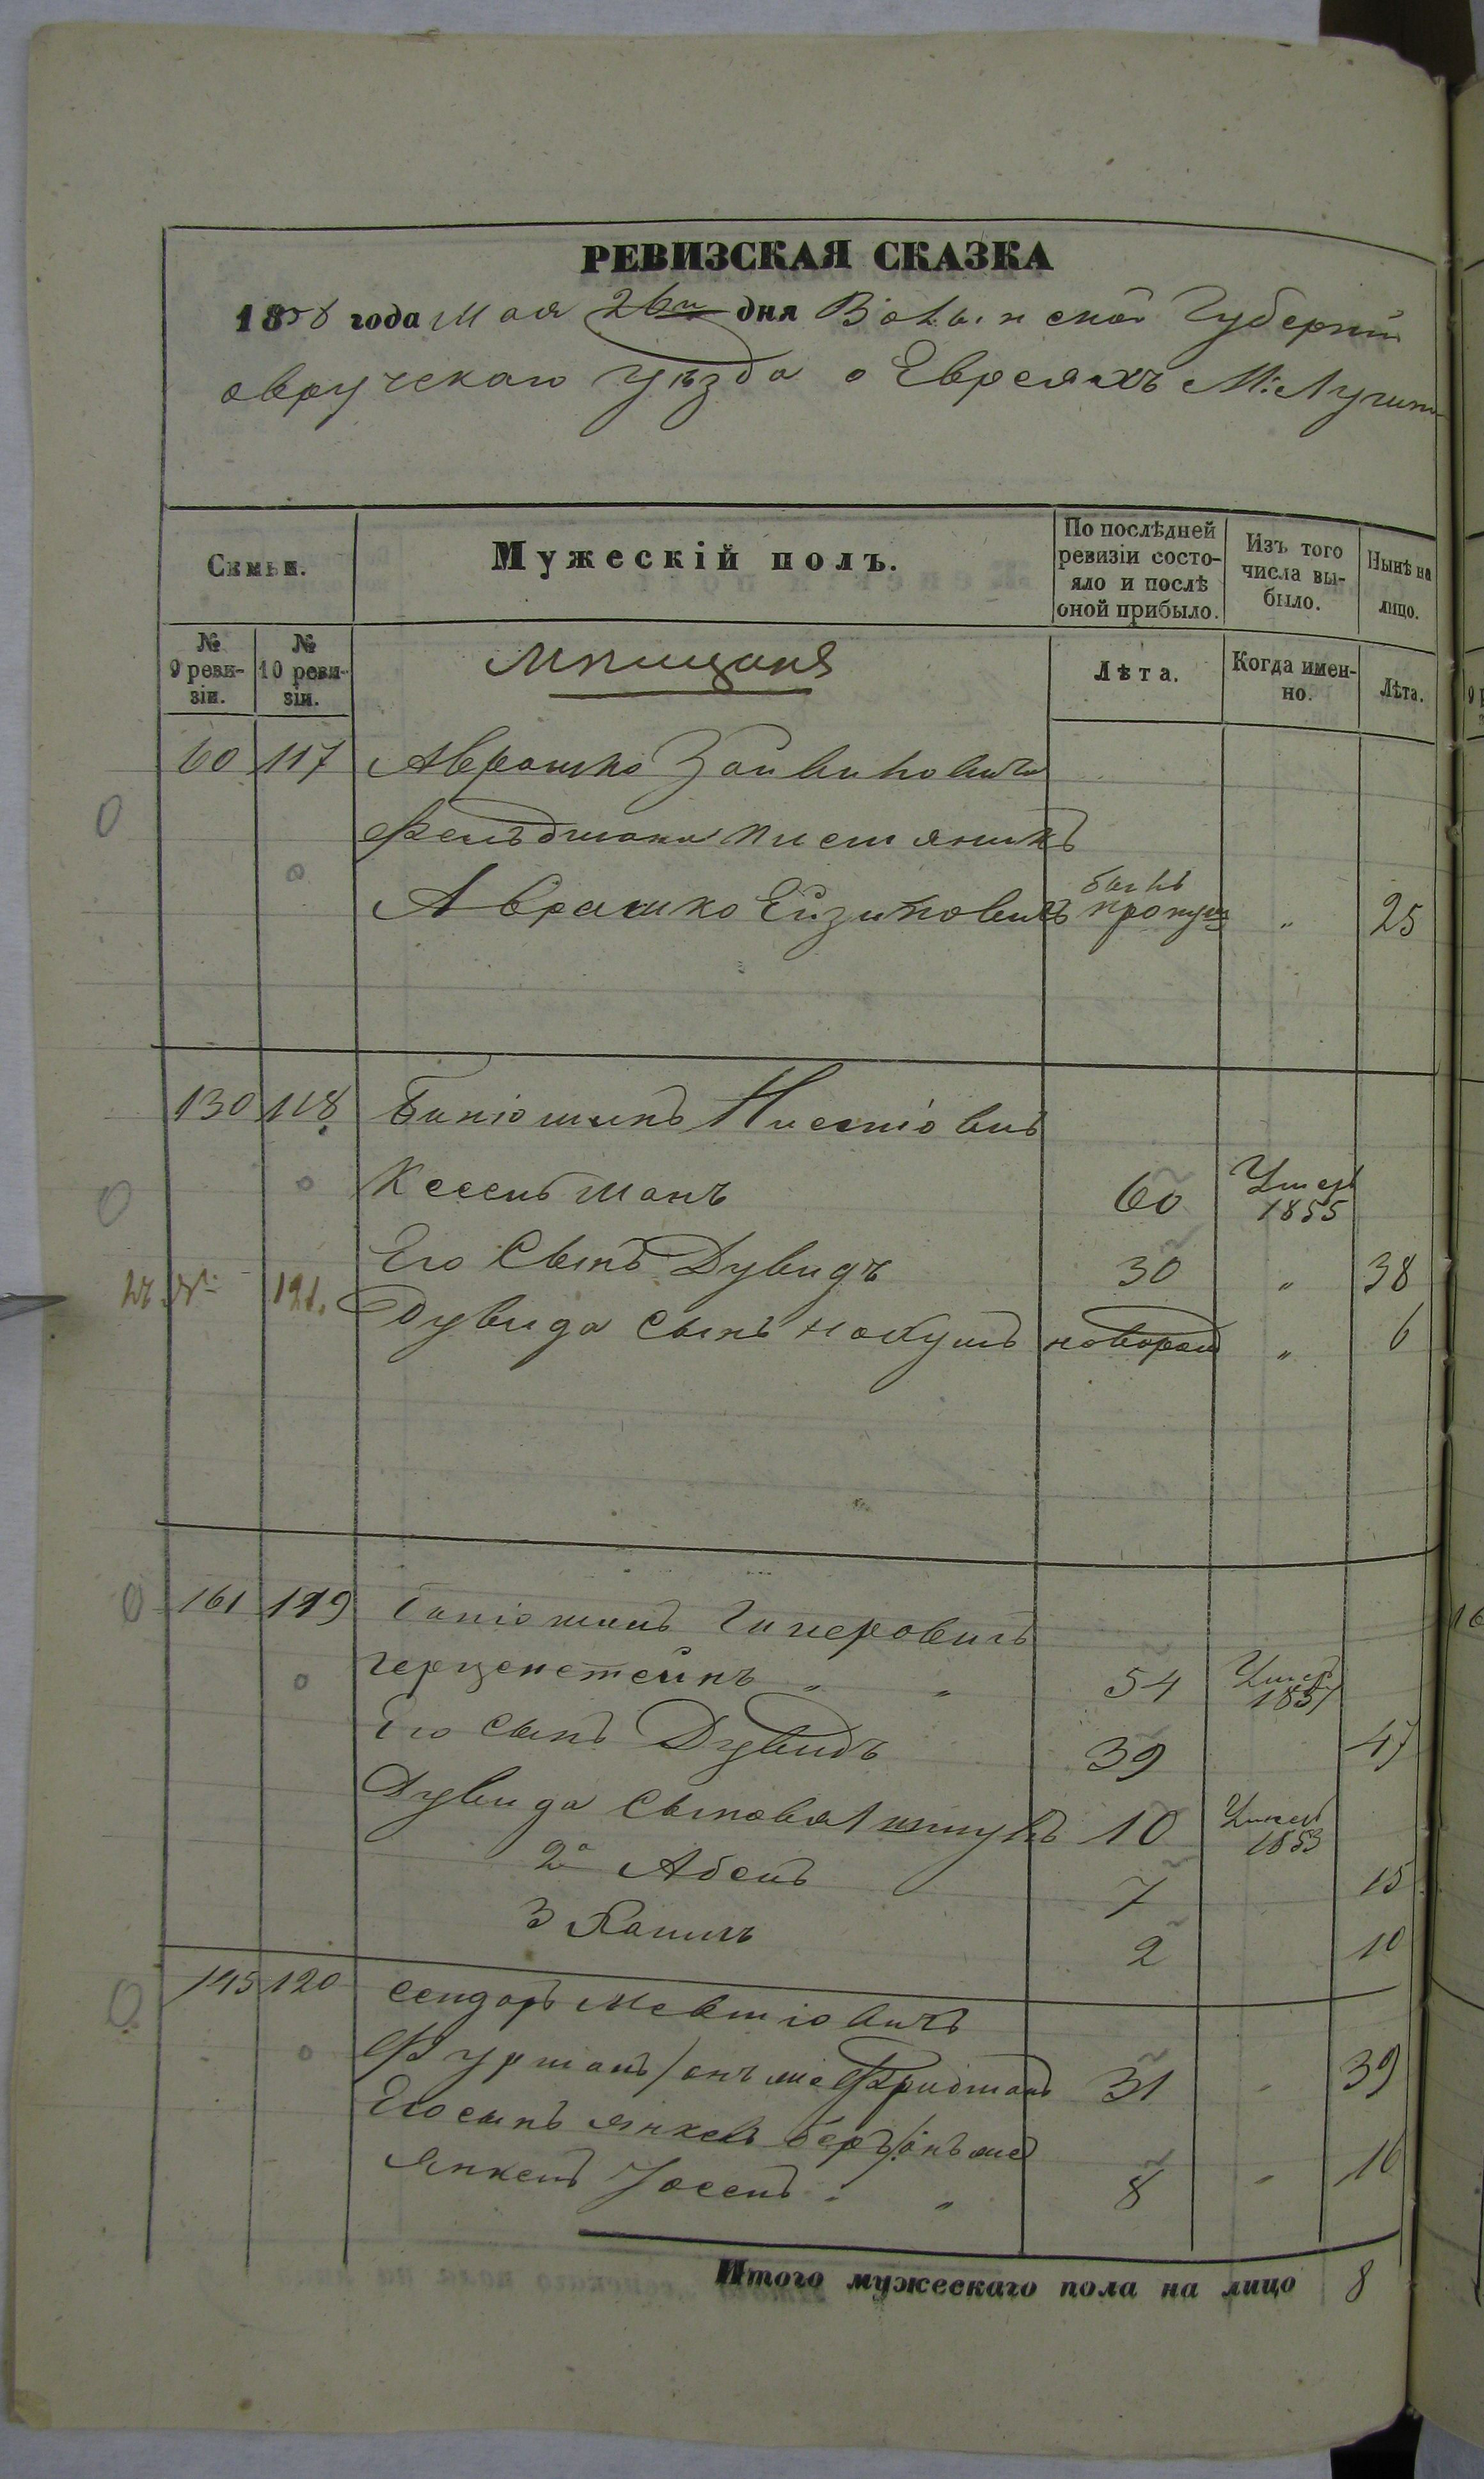 РЕВИЗСКАЯ СКАЗКА
1858 года мая 26го дня Волынской Губерніи
овручскаго уѣзда о Евреяхъ М: Лугинъ
Семьи.
Мужескій полъ.
По послѣдней ревизіи состояло и послѣ оной прибыло.
Изъ того числа выбыло.
Нынѣ на лицо.
№ 9 ревизіи.
№ 10 ревизіи.
мѣщаня
Лѣта.
Когда именно.
Лѣта.
60 117 Аврашко
Фельдмана
Аврашко былъ пропущ „ 25
130 118 Беніоминъ
60 Умеръ 1855
Его Сынъ Дувидъ 30 „ 38
121. Дувида Сынъ нахумъ новорож „ 6
161 119 Беніоминъ
герценстейнъ „ „ 54 Умер 1857
Его Сынъ Дувидъ 39 47
Дувида Сыновья 1 10 Умеръ 1853
2й Абель 7 15
3 2 10
120 сендоръ
Фурманъ/онъ же Фридманъ 31 „ 39
Его сынъ янкель беръ/онъ же
Янкель Іосель „ 8 „ 16
Итого мужескаго пола на лицо 8